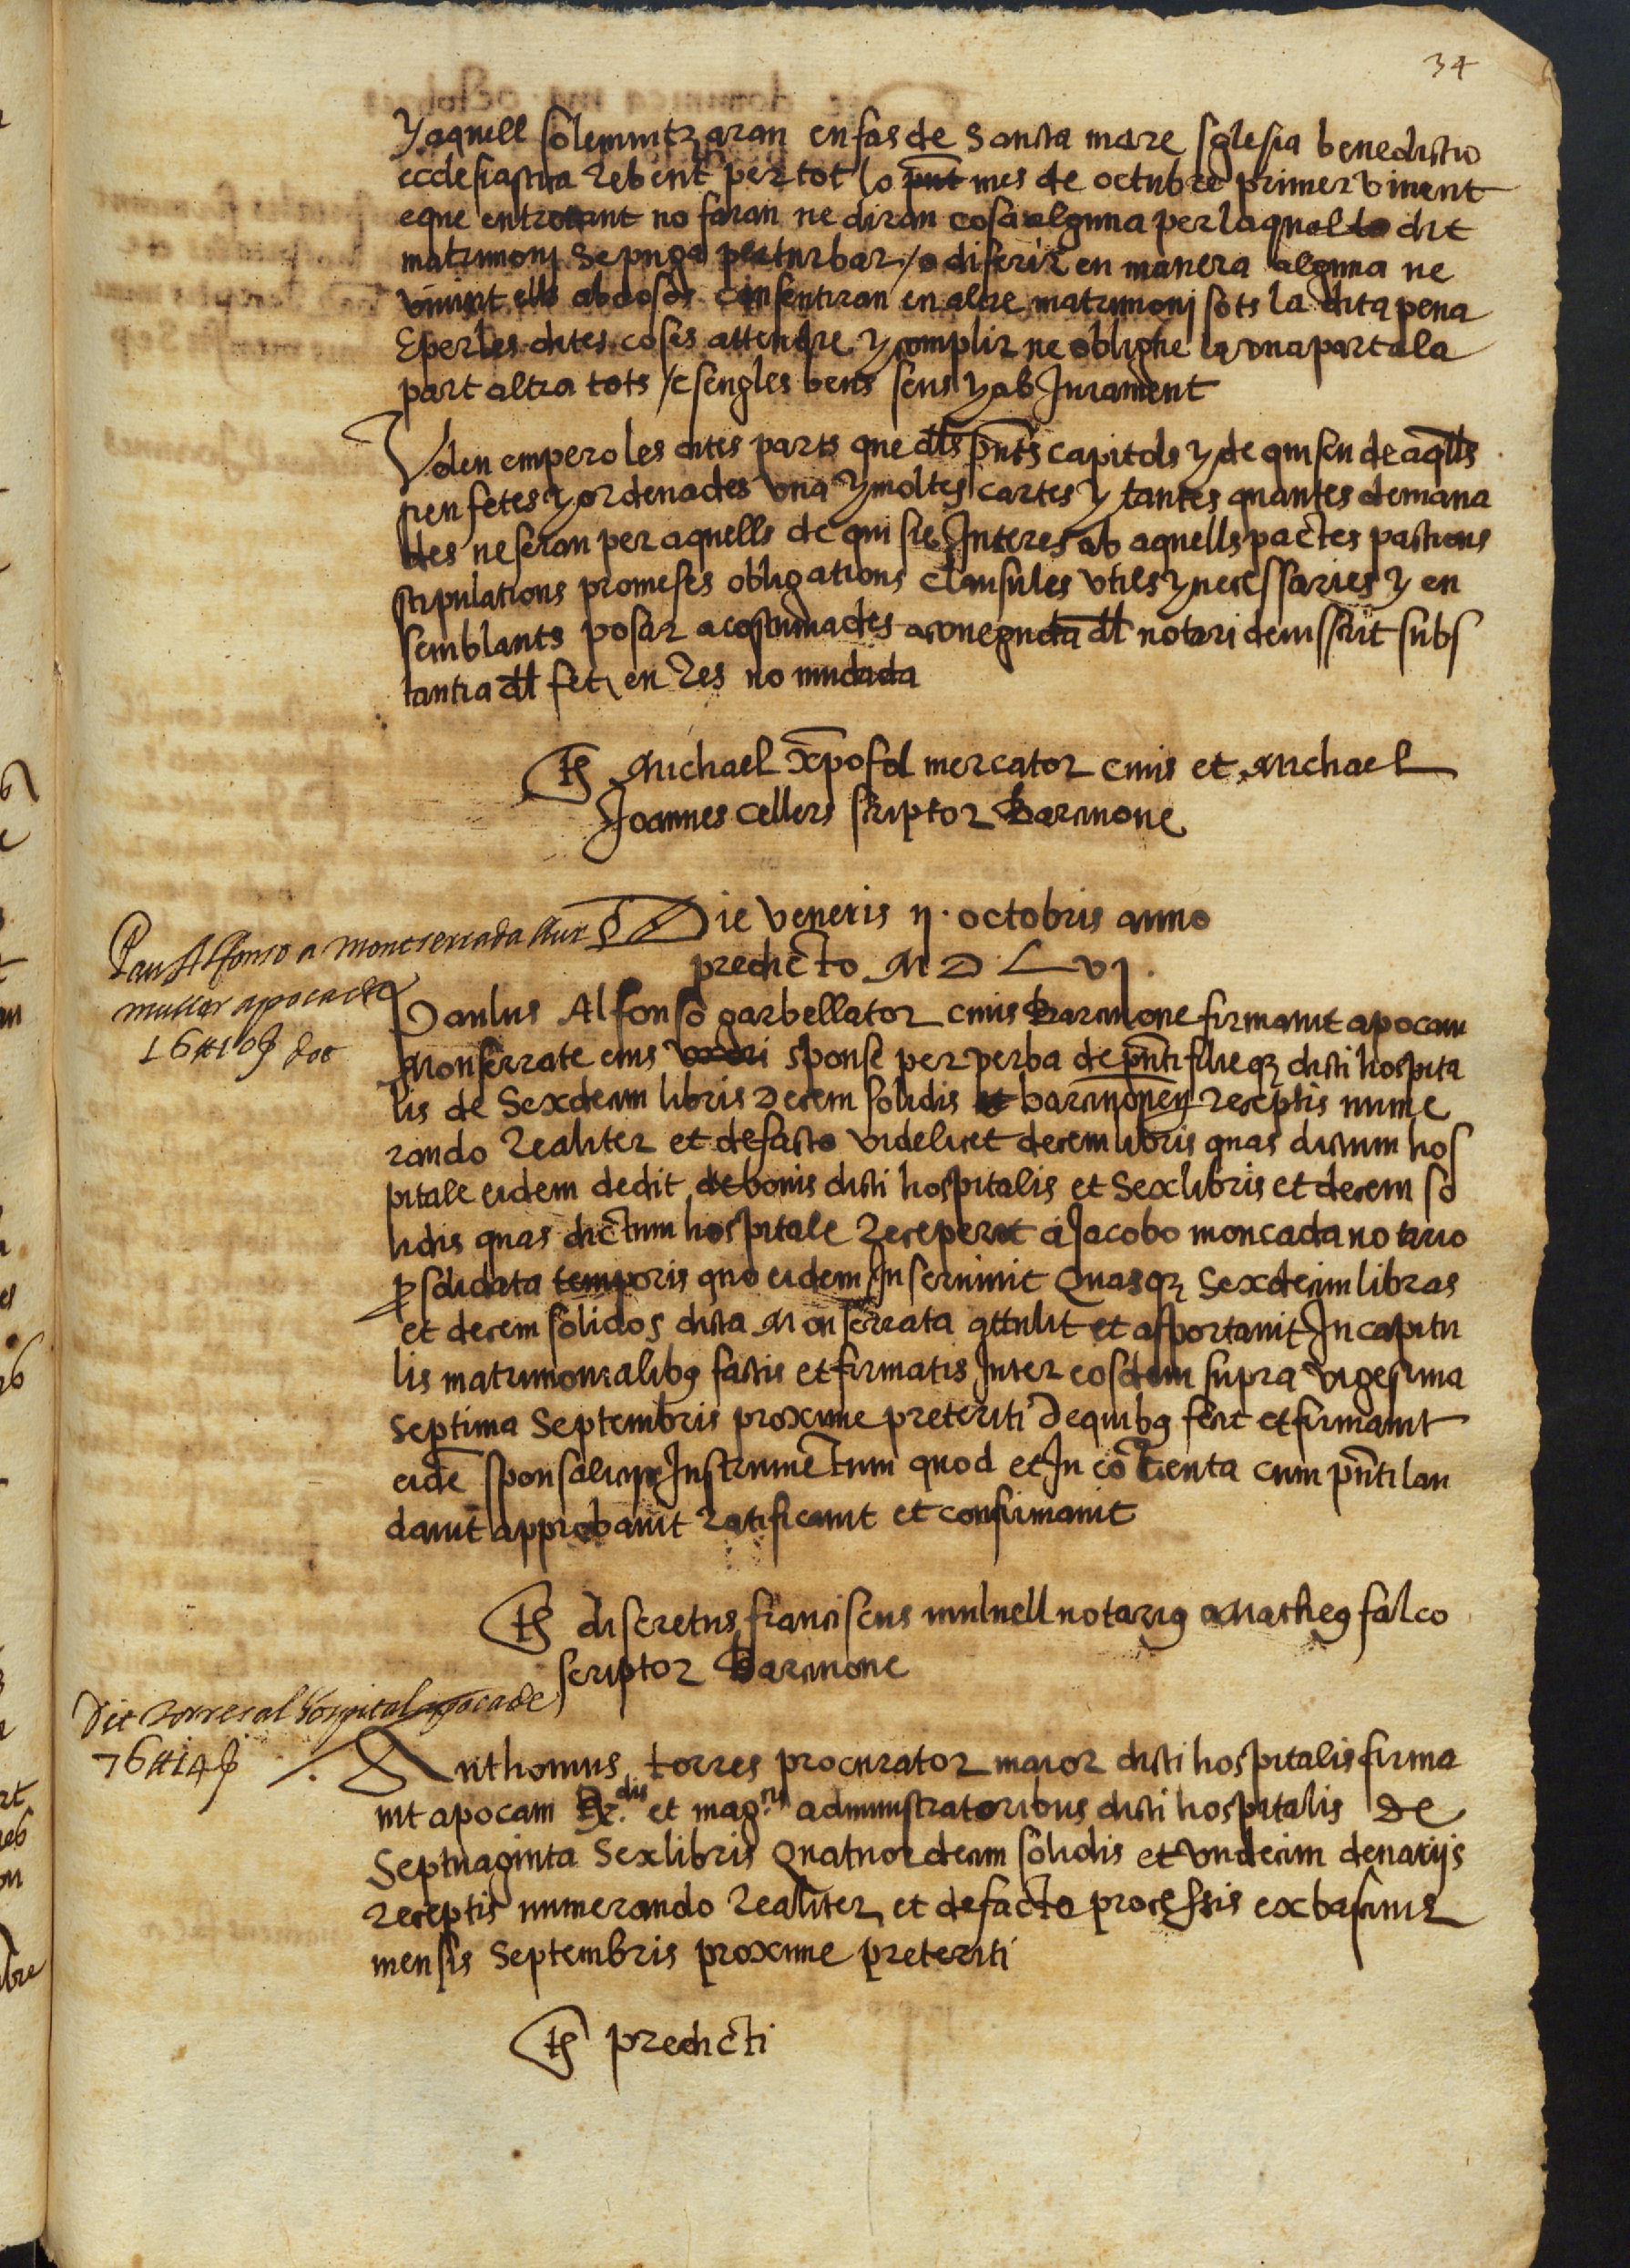 34
Y aquell solemnitzaran en fas de Sancta mare sglesia benedictio
ecclesiastica rebent per tot lo pnt mes de octubre primer vinent
e que entretant no faran ne diran cosa alguna per la qual lo dit
matrimonj se puga perturbar / o diferir en manera alguna ne
vivint ells abdosos consentiran en altre matrimonj sots la dita pena
E per les dites coses attendre y complir ne oblighe la una part a la
part altra tots / e sengles bens seus y ab Jurament
Volen empero les dites parts que dls pnts capitols y de quiscu de aqlls
sien fetes y ordenades una y moltes cartes y tantes quantes demana
des ne seran per aquells de qui sie Interes ab aquells pactes pactions
stipulations promeses obligations clausules utils y necessaries y en
semblants posar acostumades a coneguda dl notari devisscrit subs
tantia dl fet en res no mudada
ts Michael xpofol mercator civis et Michael
Joannes cellers scriptor Barcinone
Die veneris ij. octobris anno
predicto M D L vj.
Pau Alfonso a Montserrada sua
muller apoca de
16 # 10 ſ dot
Paulus Alfonso garbellator civis Barcinone firmavit apocam
Monserrate eius uxori sponse per verba de pnti filieqz dicti hospita
lis de Sexdecim libris Decem solidis barcinonen receptis nume
rando realiter et de facto videlicet decem libris quas dictum hos
pitale eidem dedit de bonis dicti hospitalis et Sex libris et decem so
lidis quas dictum hospitale receperat a Jacobo moncada notario
p soldata temporis quo eidem Inservivit Quasqz Sexdecim libras
et decem solidos dicta Monserrata attulit et asportavit In capitu
lis matrimonialibus factis et firmatis Inter eosdem supra vigesima
septima Septembris proxime preteriti De quibus fecit et firmavit
eide sponsalicium Instrumentum quod et In co tenta cum pnti lau
davit approbavit ratificavit et confirmavit
ts discretus franciscus mulnell notarius Matheus falco
scriptor Barcinone
Dit torres al hospital apoca de
76 # 14 ſ
Anthonius torres procurator maior dicti hospitalis firma
vit apocam R.dis et mag.cis administratoribus dicti hospitalis de
Septuaginta Sex libris Quatuordecim solidis et undecim denariis
receptis numerando realiter et de facto processis ex bassinis
mensis Septembris proxime preteriti
ts predicti